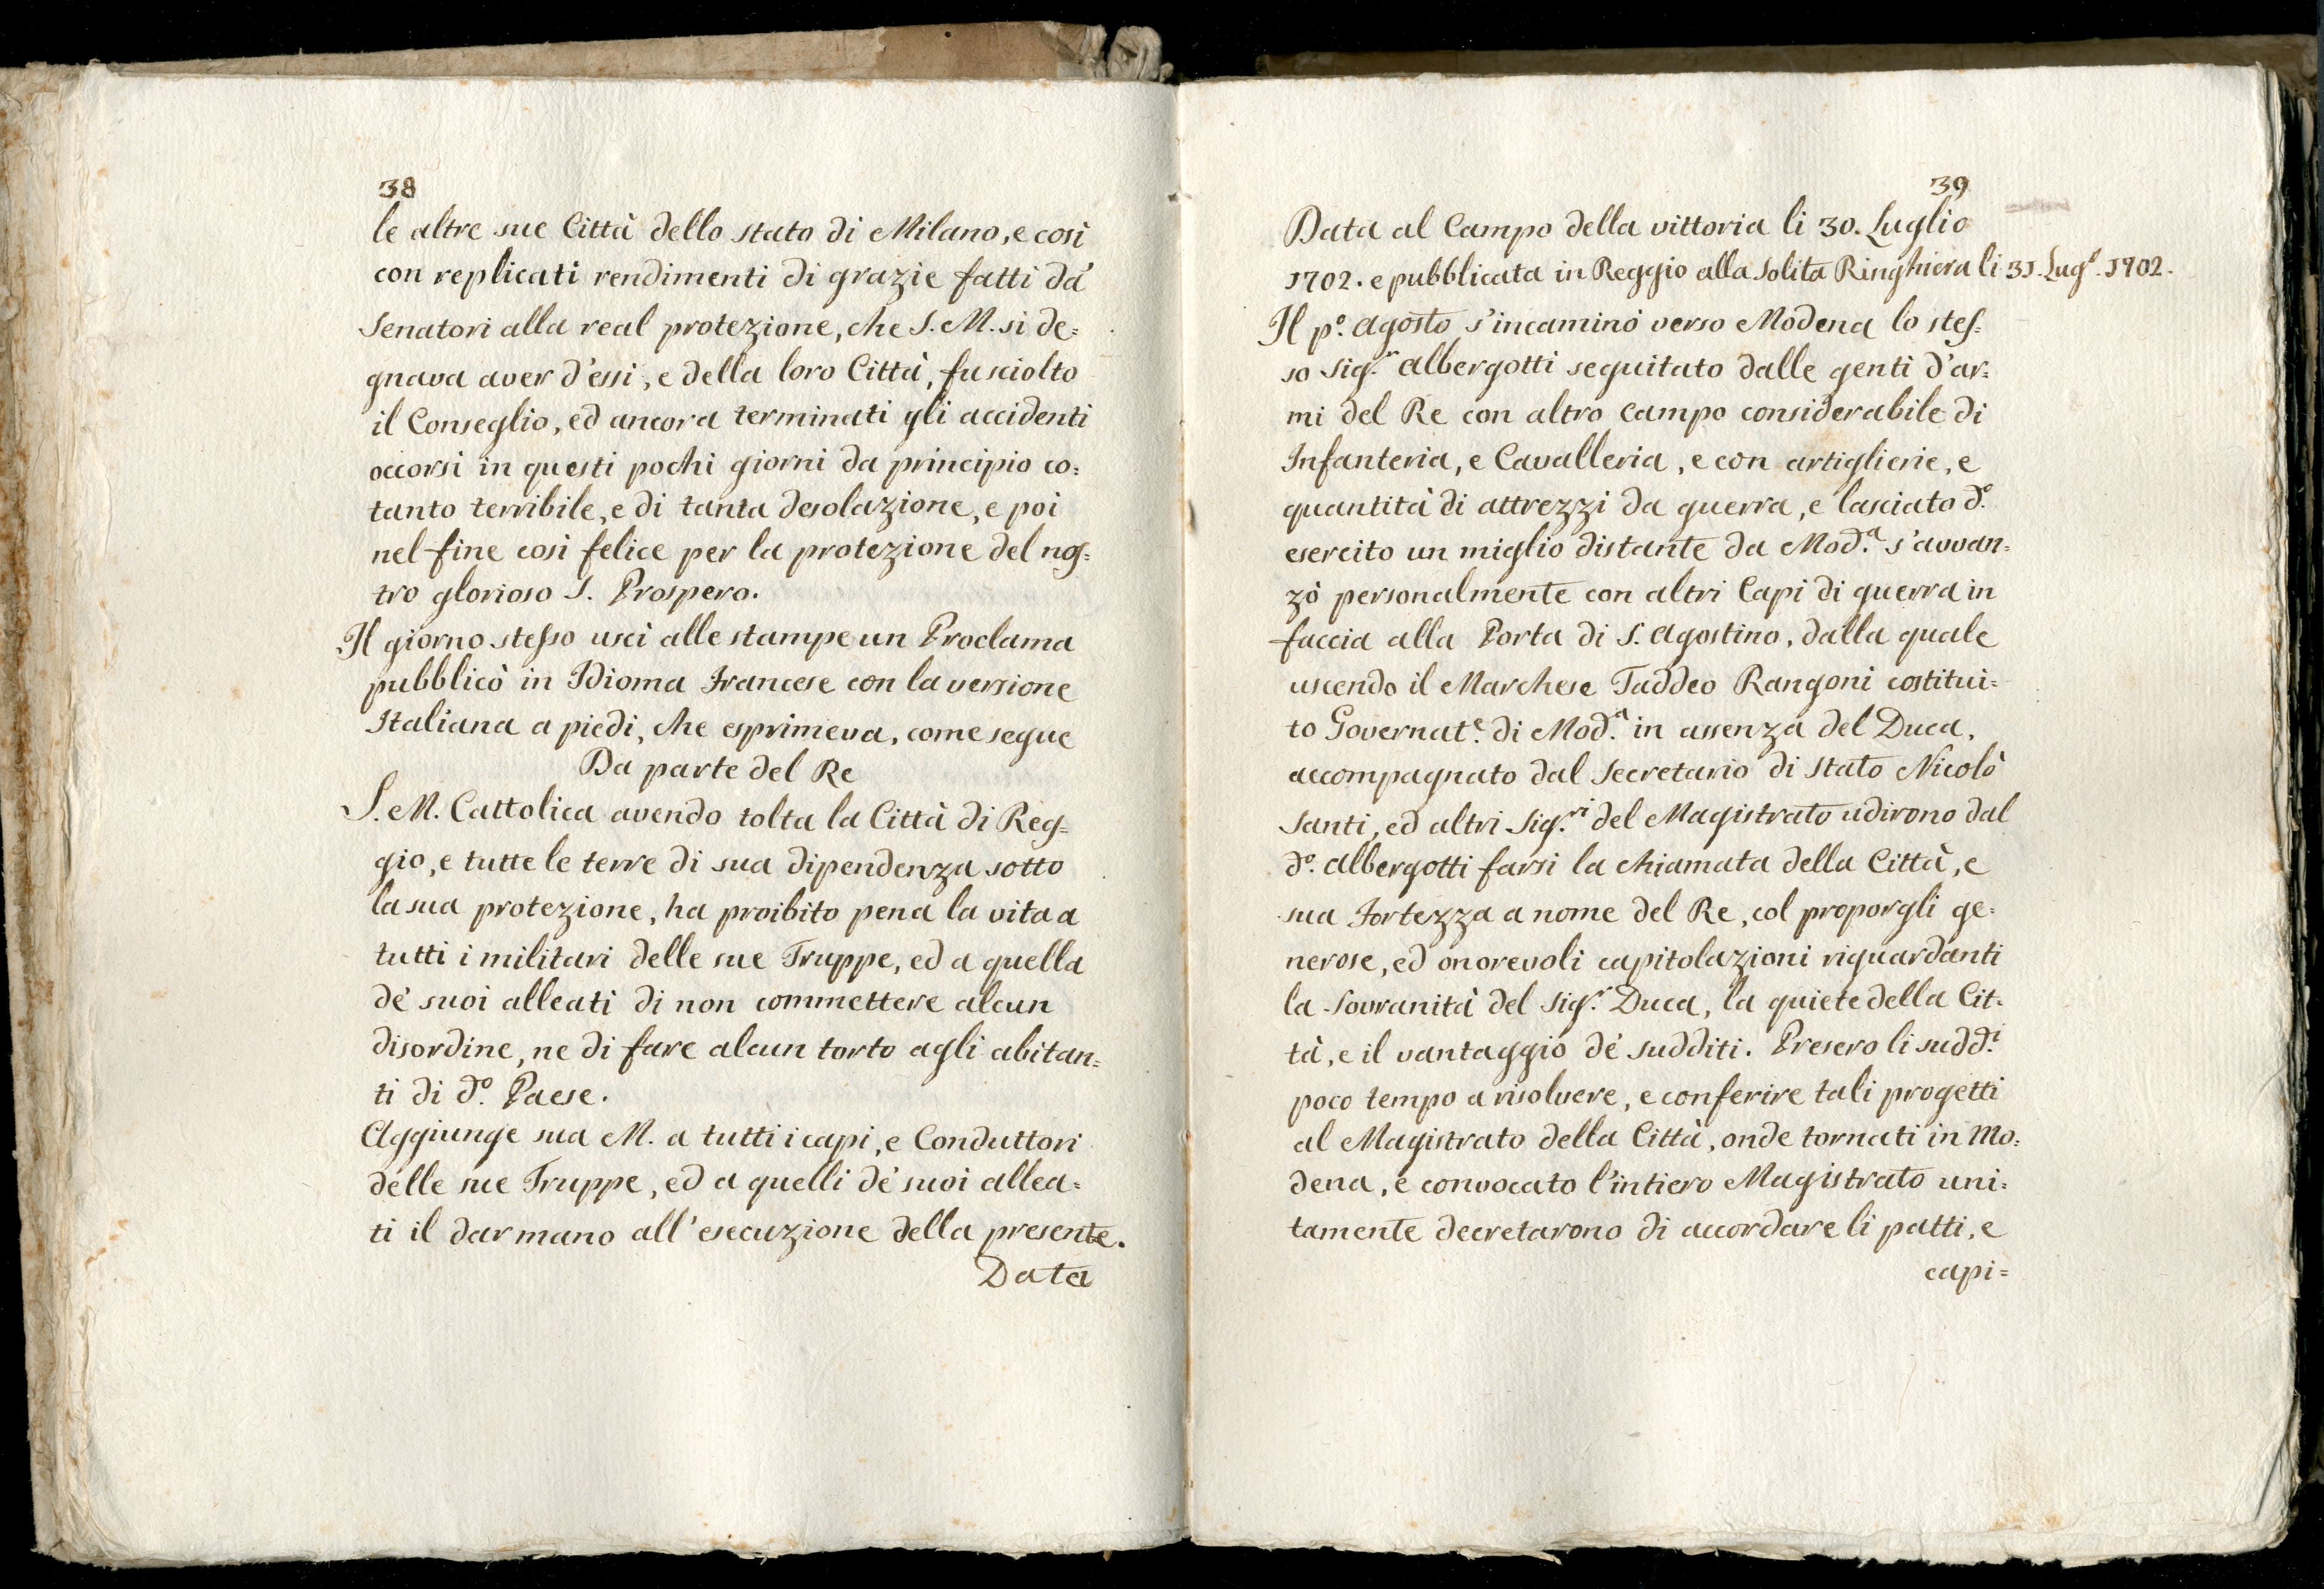 38
le altre sue Città dello stato di Milano, e così
con replicati rendimenti di grazie fatti da'
Senatori alla real protezione, che S. M. si de=
gnava aver d'essi, e della loro Città, fu sciolto
il Conseglio, ed ancora terminati gli accidenti
occorsi in questi pochi giorni da principio co=
tanto terribile, e di tanta desolazione, e poi
nel fine così felice per la protezione del nos=
tro glorioso S. Prospero.
Il giorno stesso uscì alle stampe un Proclama
pubblicò in Idioma Francese con la versione
Italiana a piedi, che esprimeva, come segue
Da parte del Re
S. M. Cattolica avendo tolta la Città di Reg=
gio, e tutte le terre di sua dipendenza sotto
la sua protezione, ha proibito pena la vita a
tutti i militari delle sue Truppe, ed a quella
de' suoi alleati di non commettere alcun
disordine, ne di fare alcun torto agli abitan=
ti di d.º Paese.
Aggiunge sua M. a tutti i capi, e Conduttori
delle sue Truppe, ed a quelli de' suoi allea=
ti il dar mano all'esecuzione della presente.
Data
39
Data al Campo della vittoria li 30. Luglio
1702. e pubblicata in Reggio alla solita Ringhiera li 31. Lug.º 1702.
Il p.º Agosto s'incaminò verso Modena lo stes=
so Sig.r Albergotti seguitato dalle genti d'ar=
mi del Re con altro campo considerabile di
Infanteria, e Cavalleria, e con artiglierie, e
quantità di attrezzi da guerra, e lasciato d.º
esercito un miglio distante da Mod.a s'avvan=
zò personalmente con altri Capi di guerra in
faccia alla Porta di S. Agostino, dalla quale
uscendo il Marchese Taddeo Rangoni costitui=
to Governat.e di Mod.a in assenza del Duca,
accompagnato dal Secretario di Stato Nicolò
Santi, ed altri Sig.ri del Magistrato udirono dal
d.º Albergotti farsi la chiamata della Città, e
sua Fortezza a nome del Re, col proporgli ge=
nerose, ed onorevoli capitolazioni riguardanti
la Sovranità del Sig.r Duca, la quiete della Cit=
tà, e il vantaggio de' sudditi. Presero li sudd.i
poco tempo a risolvere, e conferire tali progetti
al Magistrato della Città, onde tornati in Mo=
dena, e convocato l'intiero Magistrato uni=
tamente decretarono di accordare li patti, e
capi=